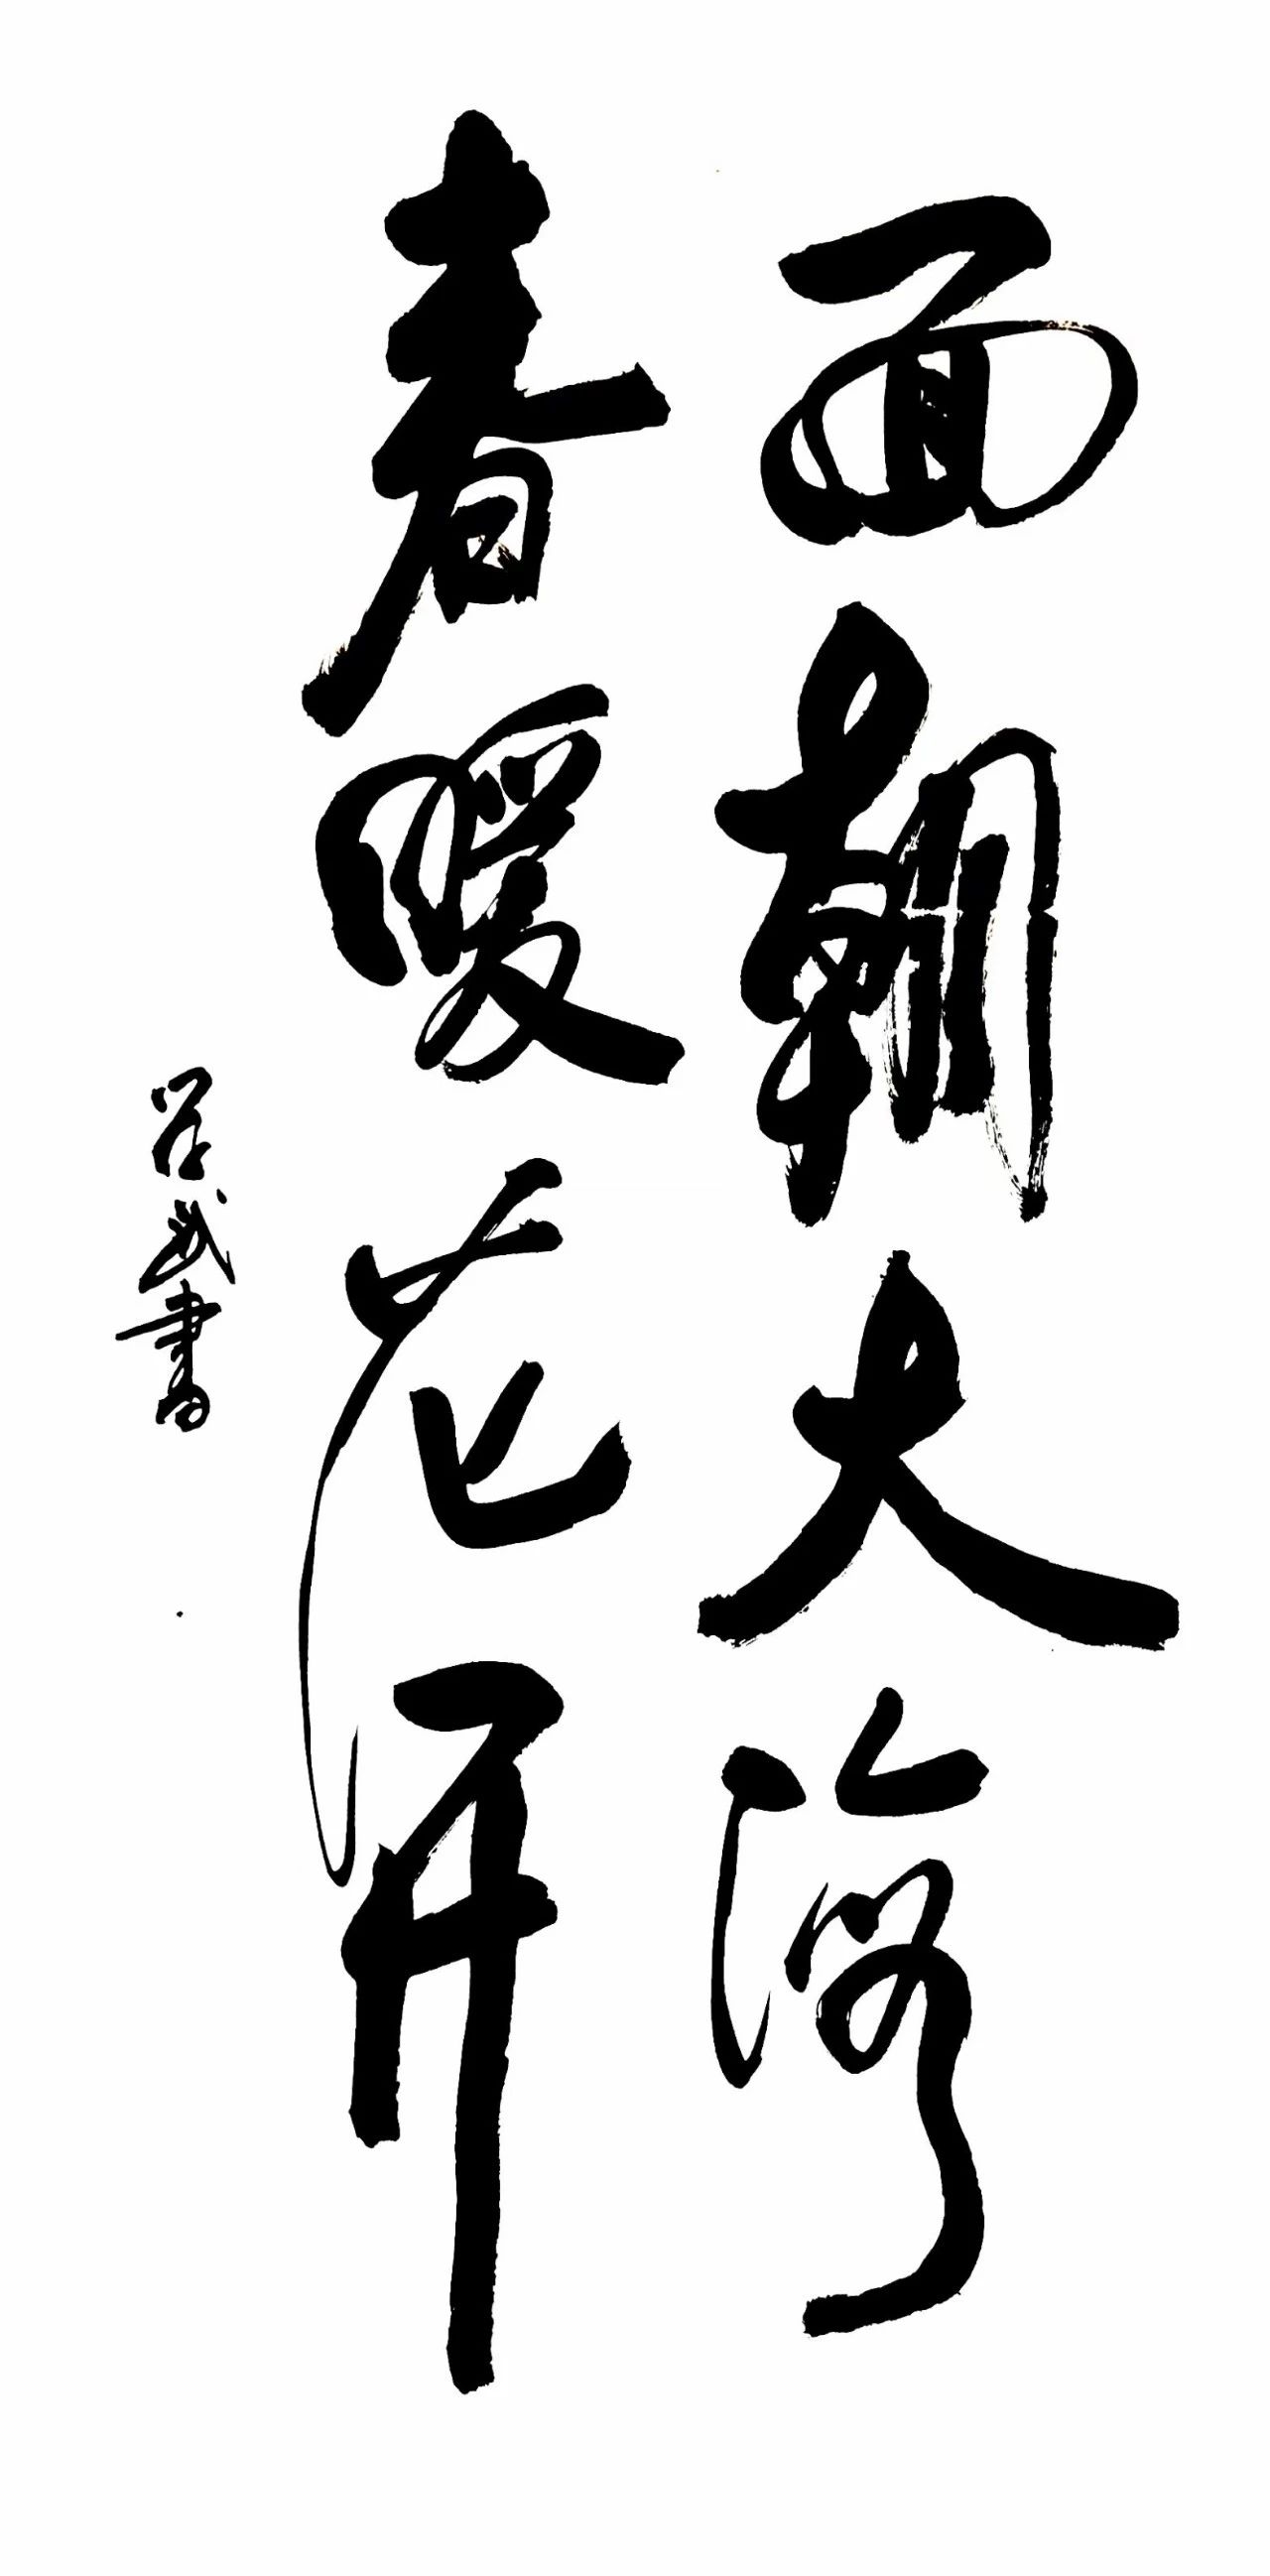 面朝大海
春暖花开
书